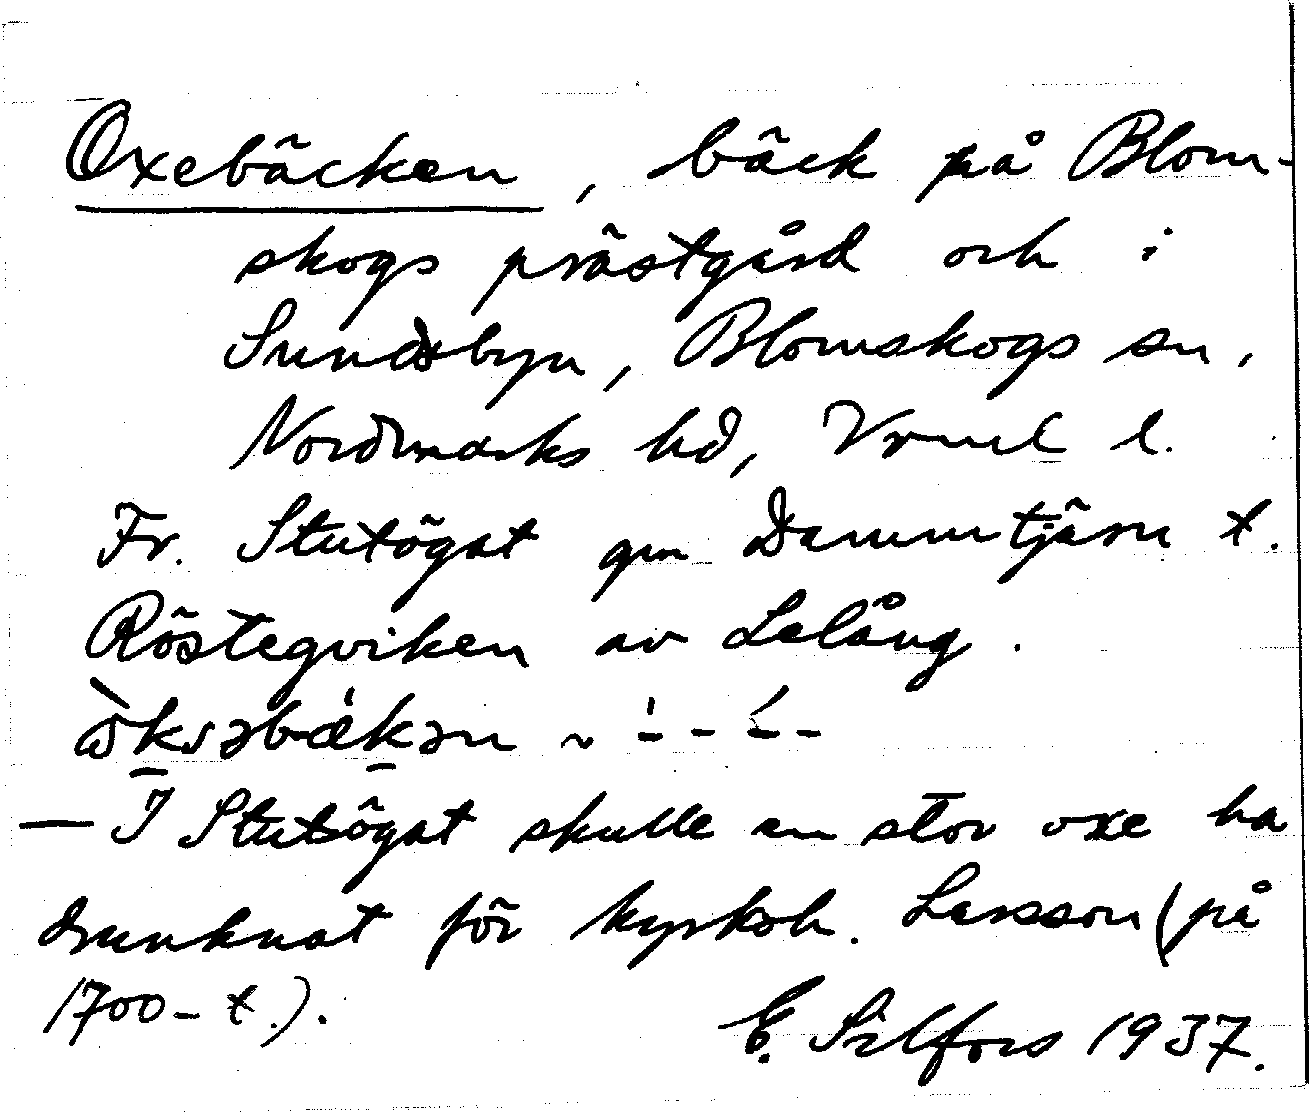 Oxebäcken, bäck på Blom-
skogs prästgård och i
Sundsbyn, Blomskogs sn,
Nordmarks hd, Vrml l.
Fr. Stutögat gm Dammtjärn t.
Röstegviken av Lelång.
ò̱ksəbæ̀ḵən ~ '- - ´- -
— I Stutögat skulle en stor oxe ha
drunknat för kyrkoh. Larsson (på
1700-t.).
E. Silfors 1937.